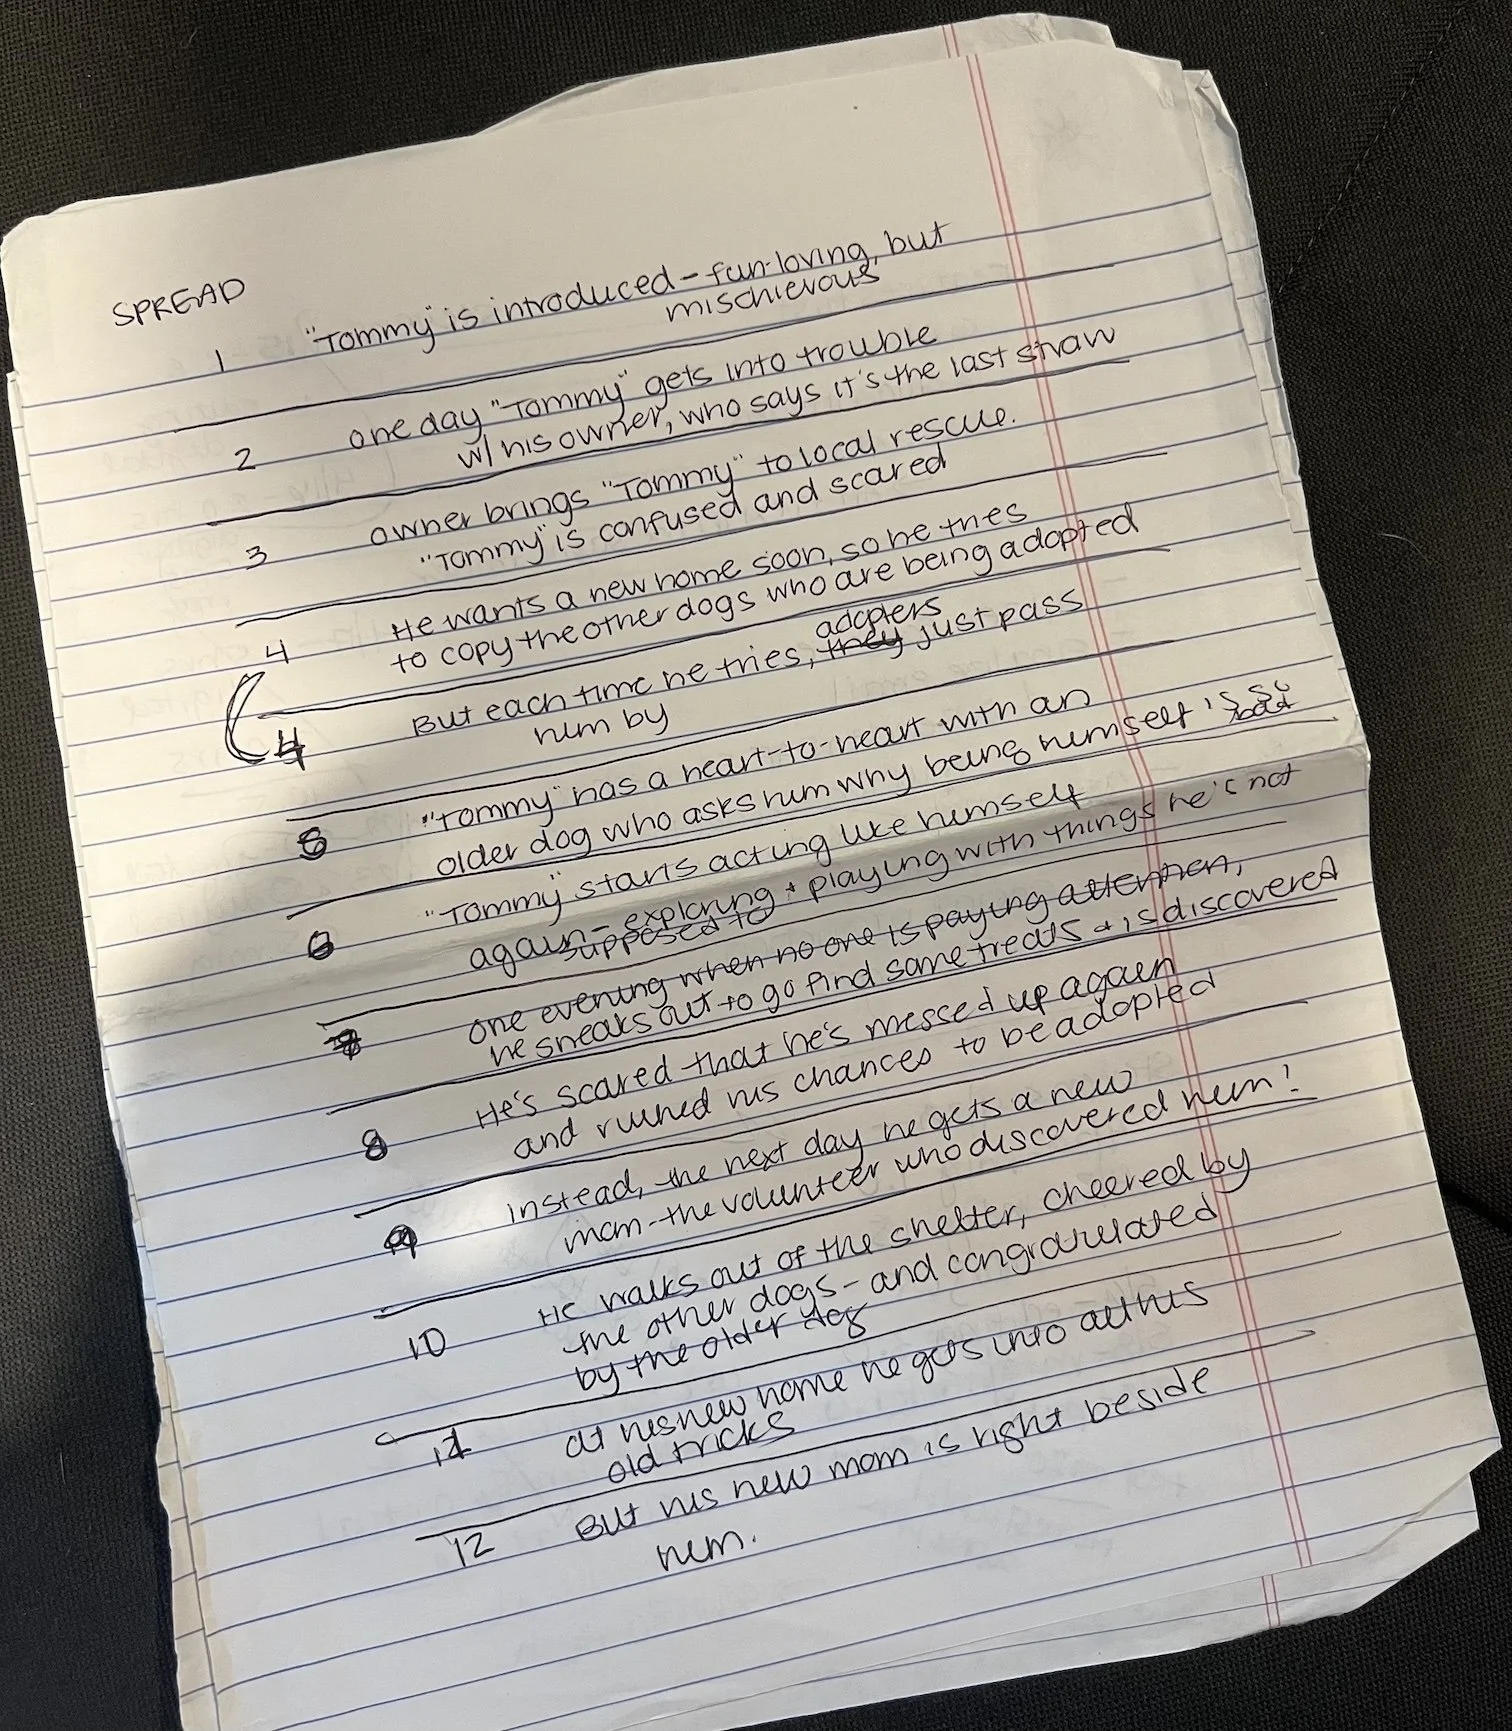 SPREAD
1 "Tommy" is introduced - fun-loving, but
mischievous
2 one day "Tommy" gets into trouble
w/ his owner, who says it's the last straw
3 owner brings "Tommy" to local rescue.
"Tommy" is confused and scared
4 He wants a new home soon, so he tries
to copy the other dogs who are being adopted
adopters
4 But each time he tries, they just pass
him by
5 "Tommy" has a heart-to-heart with an
older dog who asks him why being himself is so
bad
6 "Tommy" starts acting like himself
again - exploring + playing with things he's not
supposed to
one evening when no one is paying attention,
he sneaks out to go find some treats + is discovered
8 He's scared that he's messed up again
and ruined his chances to be adopted
9 instead, the next day he gets a new
mom - the volunteer who discovered him!
10 He walks out of the shelter, cheered by
the other dogs - and congratulated
by the older dog
11 at his new home he gets into all his
old tricks
12 But his new mom is right beside
him.